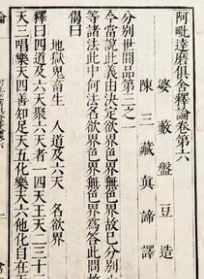 阿毗達磨俱舍釋論卷第六
婆藪盤豆造
陳三藏真諦譯
分別世間品第三之一
今當說此義由決定欲界色界無色界故已分別
等諸法此中何法名欲界色界無色界為答此問
偈曰
地獄鬼畜生　人道及六天　名欲界
釋曰四道及六天聚六天者一四天王天二三十
天三唱樂天四善知足天五化樂天六他化自在